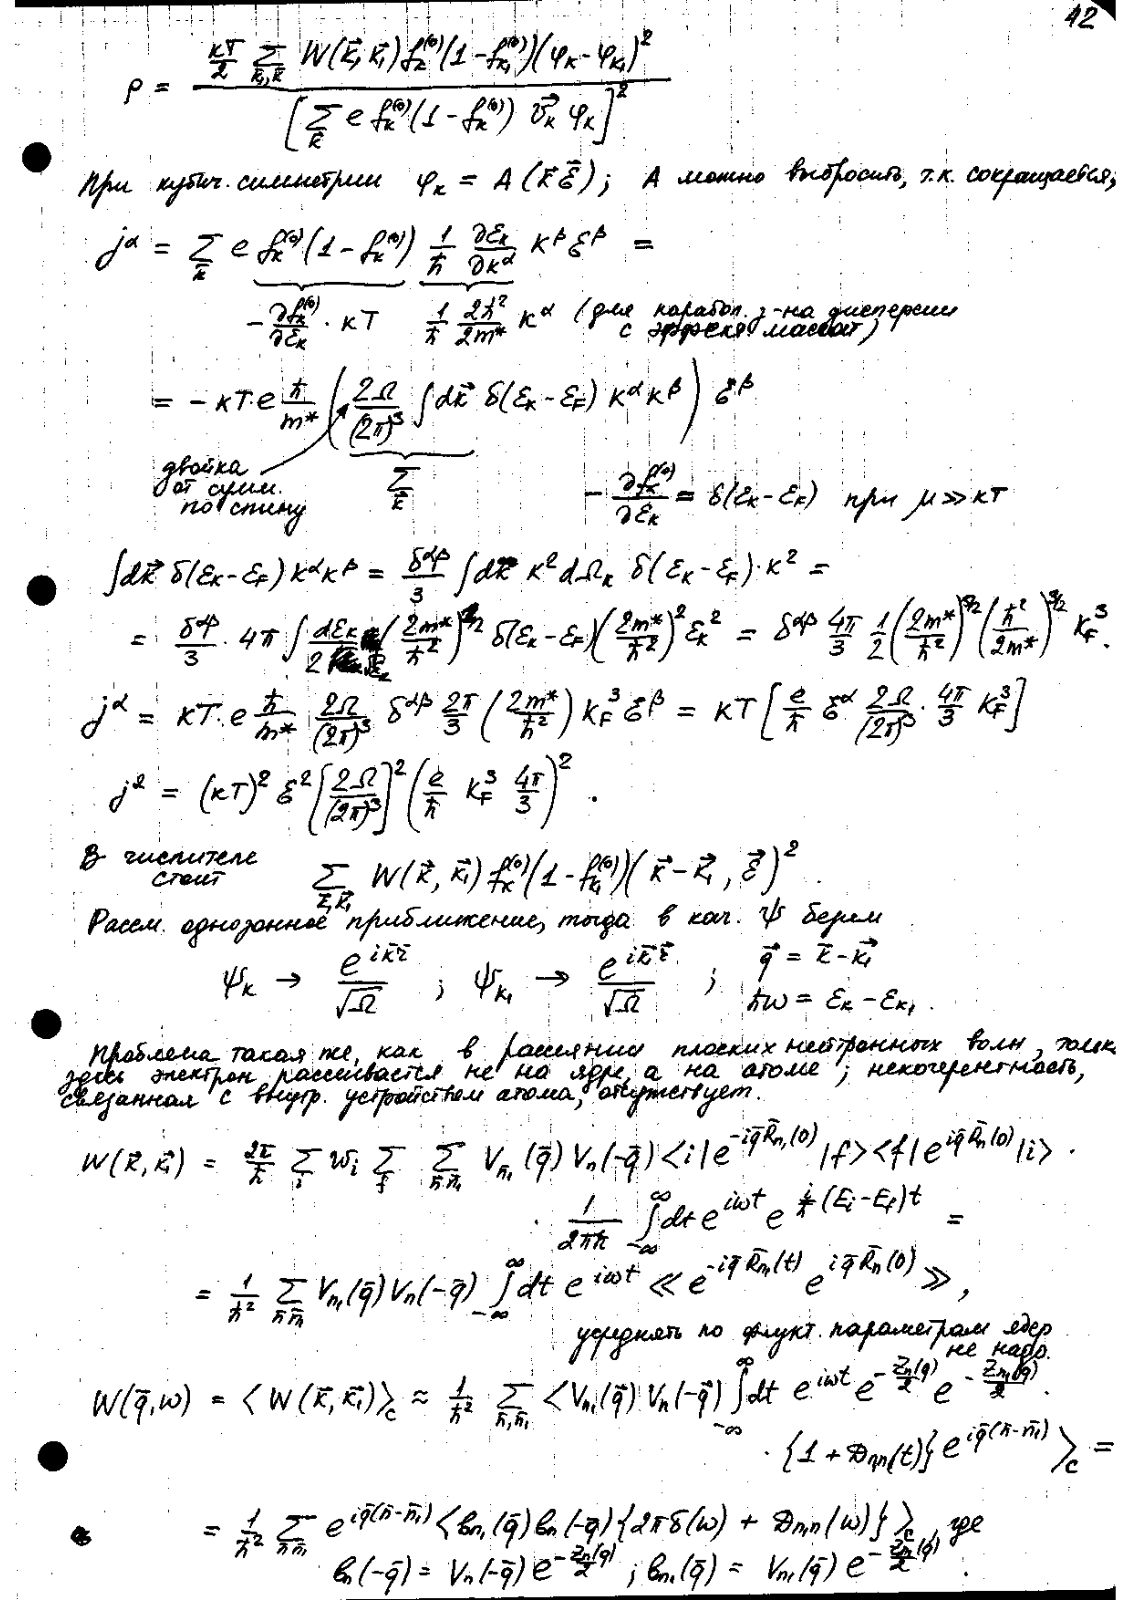 42
ρ = \frac{\frac{кT}{2} \sum_{\vec{k}_1,\vec{k}} W(\vec{k},\vec{k}_1) f_k^{(0)} (1 - f_{k_1}^{(0)}) (φ_k - φ_{k_1})^2}{[\sum_{\vec{k}} e f_k^{(0)} (1 - f_k^{(0)}) \vec{v}_k φ_k]^2}
При кубич. симметрии φ_k = A(\vec{k}\vec{ℰ}); A можно выбросить, т.к. сокращается;
j^α = \sum_{\vec{k}} e f_k^{(0)} (1 - f_k^{(0)}) \frac{1}{ħ} \frac{∂ε_k}{∂k^α} k^β ℰ^β =
-\frac{∂f_k^{(0)}}{∂ε_k} · кT   \frac{1}{ħ} \frac{2ħ^2}{2m*} k^α (для парабол. з-на дисперсии
с эффект. массой)
= - кT e \frac{ħ}{m*} ( \frac{2Ω}{(2π)^3} ∫ d\vec{k} δ(ε_k - ε_F) k^α k^β ) ℰ^β
двойка
от сумм.
по спину
\sum_{\vec{k}}   -\frac{∂f_k^{(0)}}{∂ε_k} = δ(ε_k - ε_F) при μ ≫ кT
∫ d\vec{k} δ(ε_k - ε_F) k^α k^β = \frac{δ^{αβ}}{3} ∫ dk k^2 dΩ_k δ(ε_k - ε_F) · k^2 =
= \frac{δ^{αβ}}{3} · 4π ∫ \frac{dε_k}{2} (\frac{2m*}{ħ^2})^{3/2} δ(ε_k - ε_F) (\frac{2m*}{ħ^2})^2 ε_k^2 = δ^{αβ} \frac{4π}{3} \frac{1}{2} (\frac{2m*}{ħ^2})^{5/2} (\frac{ħ^2}{2m*})^{3/2} k_F^3.
j^α = кT · e \frac{ħ}{m*} \frac{2Ω}{(2π)^3} δ^{αβ} \frac{2π}{3} (\frac{2m*}{ħ^2}) k_F^3 ℰ^β = кT [\frac{e}{ħ} ℰ^α \frac{2Ω}{(2π)^3} · \frac{4π}{3} k_F^3]
j^2 = (кT)^2 ℰ^2 [\frac{2Ω}{(2π)^3}]^2 (\frac{e}{ħ} k_F^3 \frac{4π}{3})^2.
В числителе
стоит   \sum_{\vec{k},\vec{k}_1} W(\vec{k},\vec{k}_1) f_k^{(0)} (1 - f_{k_1}^{(0)}) (\vec{k} - \vec{k}_1, \vec{ℰ})^2.
Рассм. однозонное приближение, тогда в кач. ψ берем
ψ_k → \frac{e^{i\vec{k}\vec{r}}}{\sqrt{Ω}} ; ψ_{k_1} → \frac{e^{i\vec{k}\vec{r}}}{\sqrt{Ω}} ; \vec{q} = \vec{k} - \vec{k}_1
ħω = ε_k - ε_{k_1}.
Проблема такая же, как в рассеянии плоских нейтронных волн, тольк
здесь электрон рассеивается не на ядре, а на атоме; некогерентность,
связанная с внутр. устройством атома, отсутствует.
W(\vec{k},\vec{k}_1) = \frac{2π}{ħ} \sum_i w_i \sum_f \sum_{\bar{n}\bar{n}_1} V_{\bar{n}_1}(\bar{q}) V_n(-\bar{q}) <i|e^{-i\bar{q}\bar{R}_{n_1}(0)}|f><f|e^{i\bar{q}\bar{R}_n(0)}|i> ·
· \frac{1}{2πħ} ∫_{-∞}^{∞} dt e^{iωt} e^{\frac{i}{ħ}(E_i - E_f)t} =
= \frac{1}{ħ^2} \sum_{\bar{n}\bar{n}_1} V_{n_1}(\bar{q}) V_n(-\bar{q}) ∫_{-∞}^{∞} dt e^{iωt} ≪ e^{-i\bar{q}\bar{R}_{n_1}(t)} e^{i\bar{q}\bar{R}_n(0)} ≫,
усреднять по флукт. параметрам ядер
не надо.
W(\bar{q},ω) = <W(\vec{k},\vec{k}_1)>_c ≈ \frac{1}{ħ^2} \sum_{\bar{n},\bar{n}_1} <V_{n_1}(\bar{q}) V_n(-\bar{q}) ∫_{-∞}^{∞} dt e^{iωt} e^{-\frac{Z_n(q)}{2}} e^{-\frac{Z_{n_1}(q)}{2}}.
· {1 + 𝒟_{n_1n}(t)} e^{i\bar{q}(\bar{n}-\bar{n}_1)}>_c =
= \frac{1}{ħ^2} \sum_{\bar{n}\bar{n}_1} e^{i\bar{q}(\bar{n}-\bar{n}_1)} <b_{n_1}(\bar{q}) b_n(-\bar{q}) {2πδ(ω) + 𝒟_{n_1n}(ω)}>_c, где
b_n(-\bar{q}) = V_n(-\bar{q}) e^{-\frac{Z_n(q)}{2}} ; b_{n_1}(\bar{q}) = V_{n_1}(\bar{q}) e^{-\frac{Z_{n_1}(q)}{2}}.